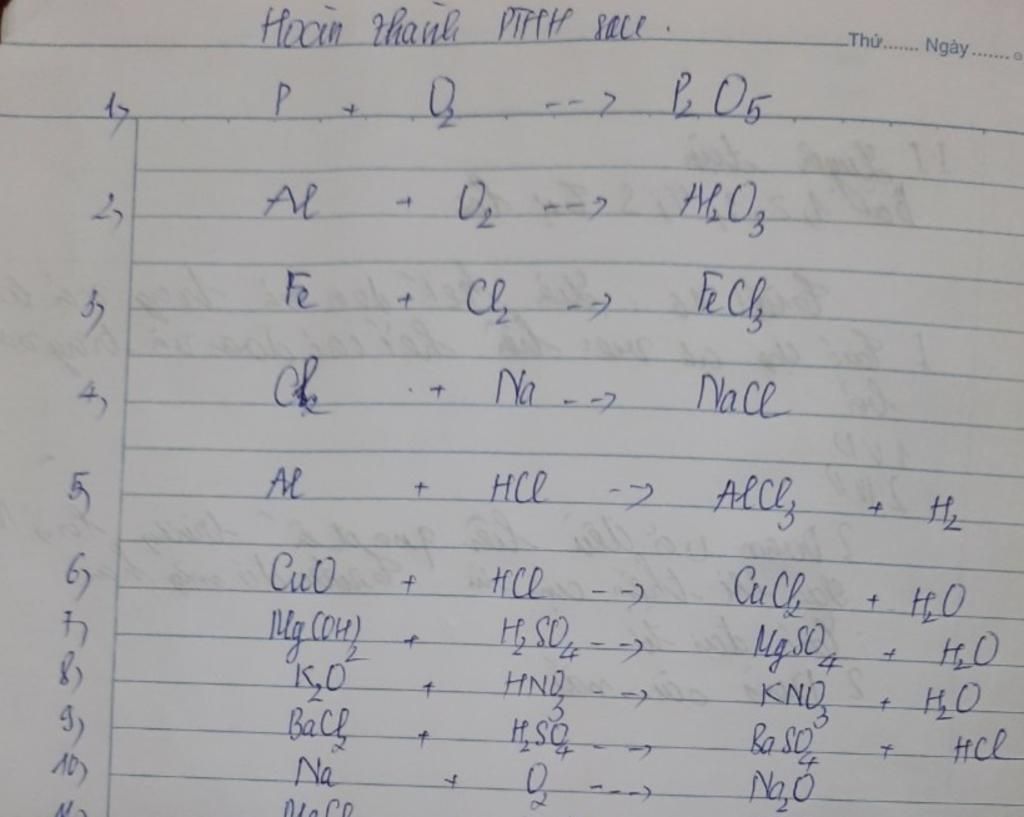 Hoàn thành PTHH sau.
Thứ....... Ngày.......
1, P + O2 --> P2O5
2, Al + O2 --> Al2O3
3, Fe + Cl2 --> FeCl3
4, Cl2 + Na --> NaCl
5, Al + HCl --> AlCl3 + H2
6, CuO + HCl --> CuCl2 + H2O
7, Mg(OH)2 + H2SO4 --> MgSO4 + H2O
8, K2O + HNO3 --> KNO3 + H2O
9, BaCl2 + H2SO4 --> BaSO4 + HCl
10, Na + O2 ---> Na2O